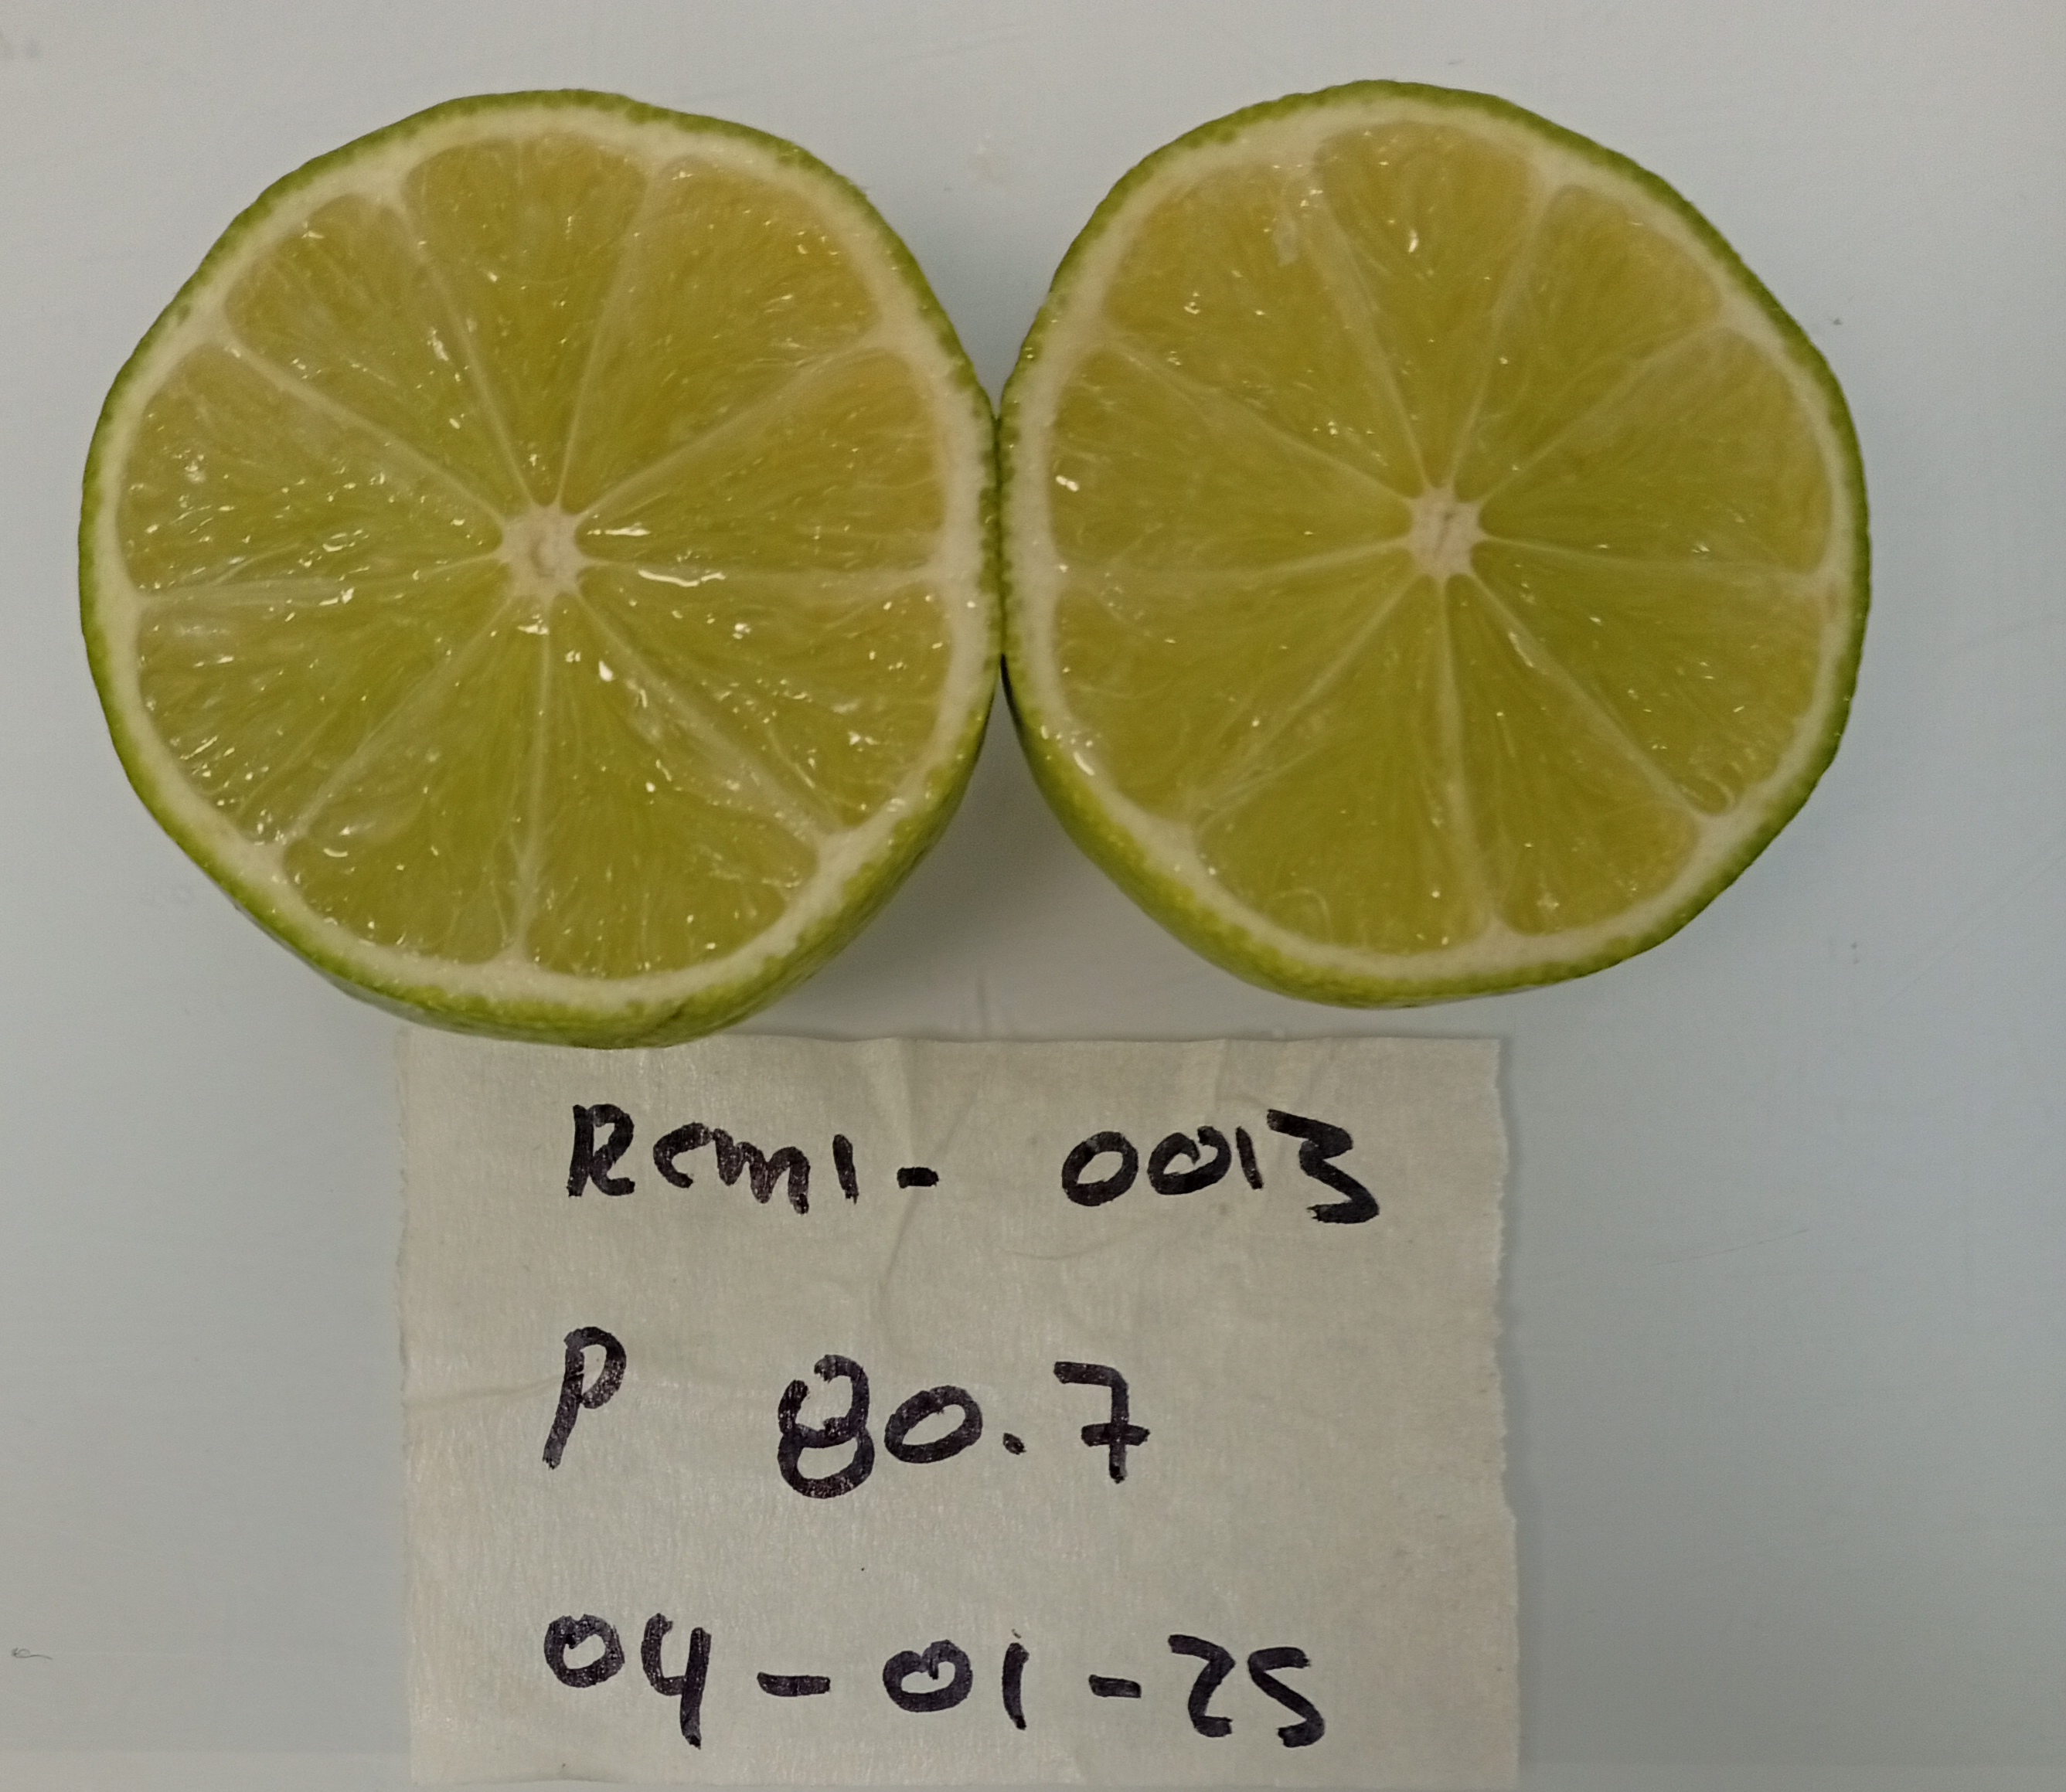 Remi- 0013
P 80.7
04-01-25